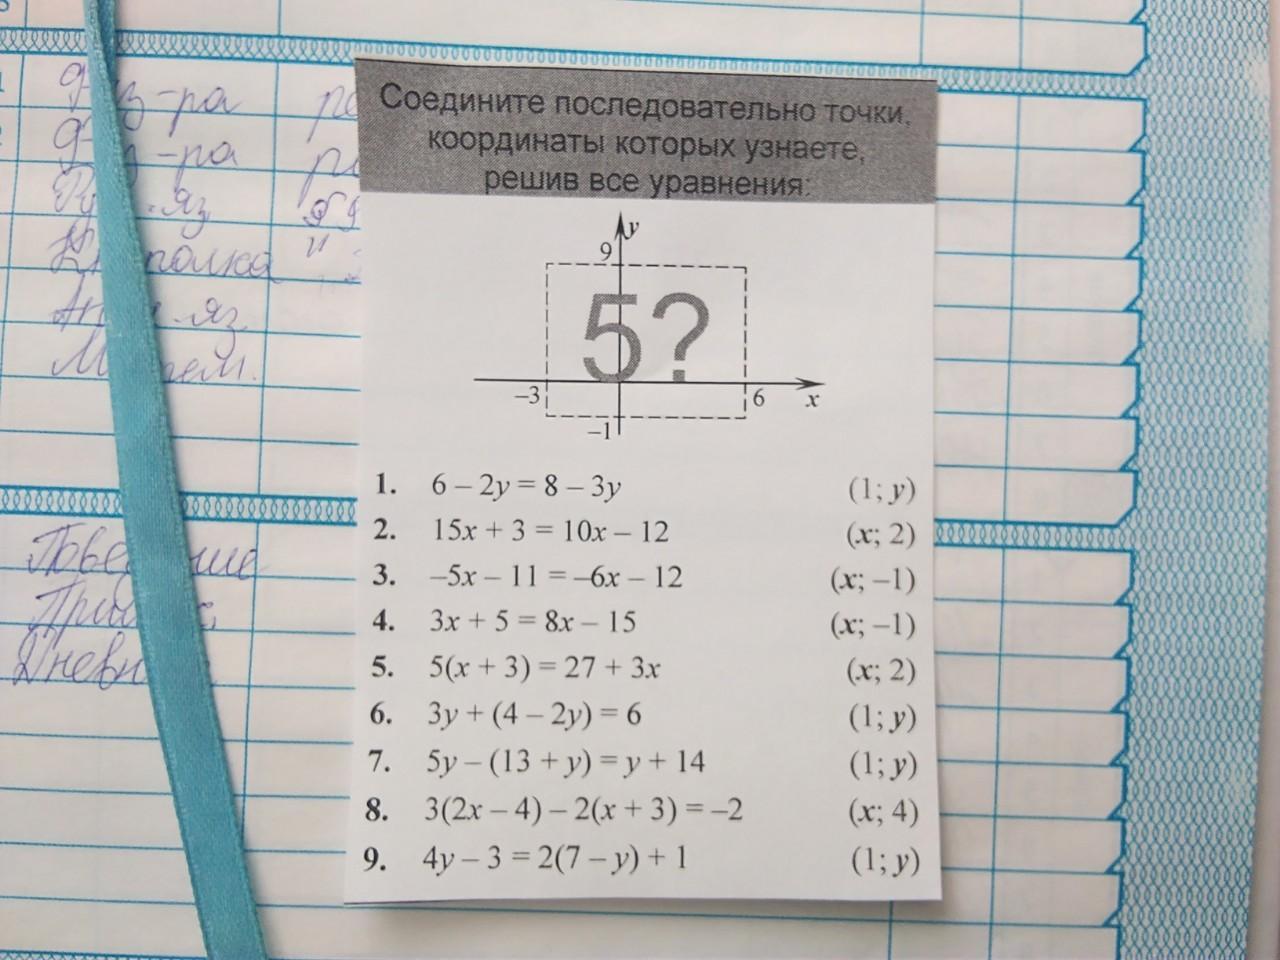 физ-ра
физ-ра
Анг. яз
Матем.
Поведение
Соедините последовательно точки,
координаты которых узнаете,
решив все уравнения:
y
9
5?
–3
6
x
–1
1. 6 – 2y = 8 – 3y (1; y)
2. 15x + 3 = 10x – 12 (x; 2)
3. –5x – 11 = –6x – 12 (x; –1)
4. 3x + 5 = 8x – 15 (x; –1)
5. 5(x + 3) = 27 + 3x (x; 2)
6. 3y + (4 – 2y) = 6 (1; y)
7. 5y – (13 + y) = y + 14 (1; y)
8. 3(2x – 4) – 2(x + 3) = –2 (x; 4)
9. 4y – 3 = 2(7 – y) + 1 (1; y)